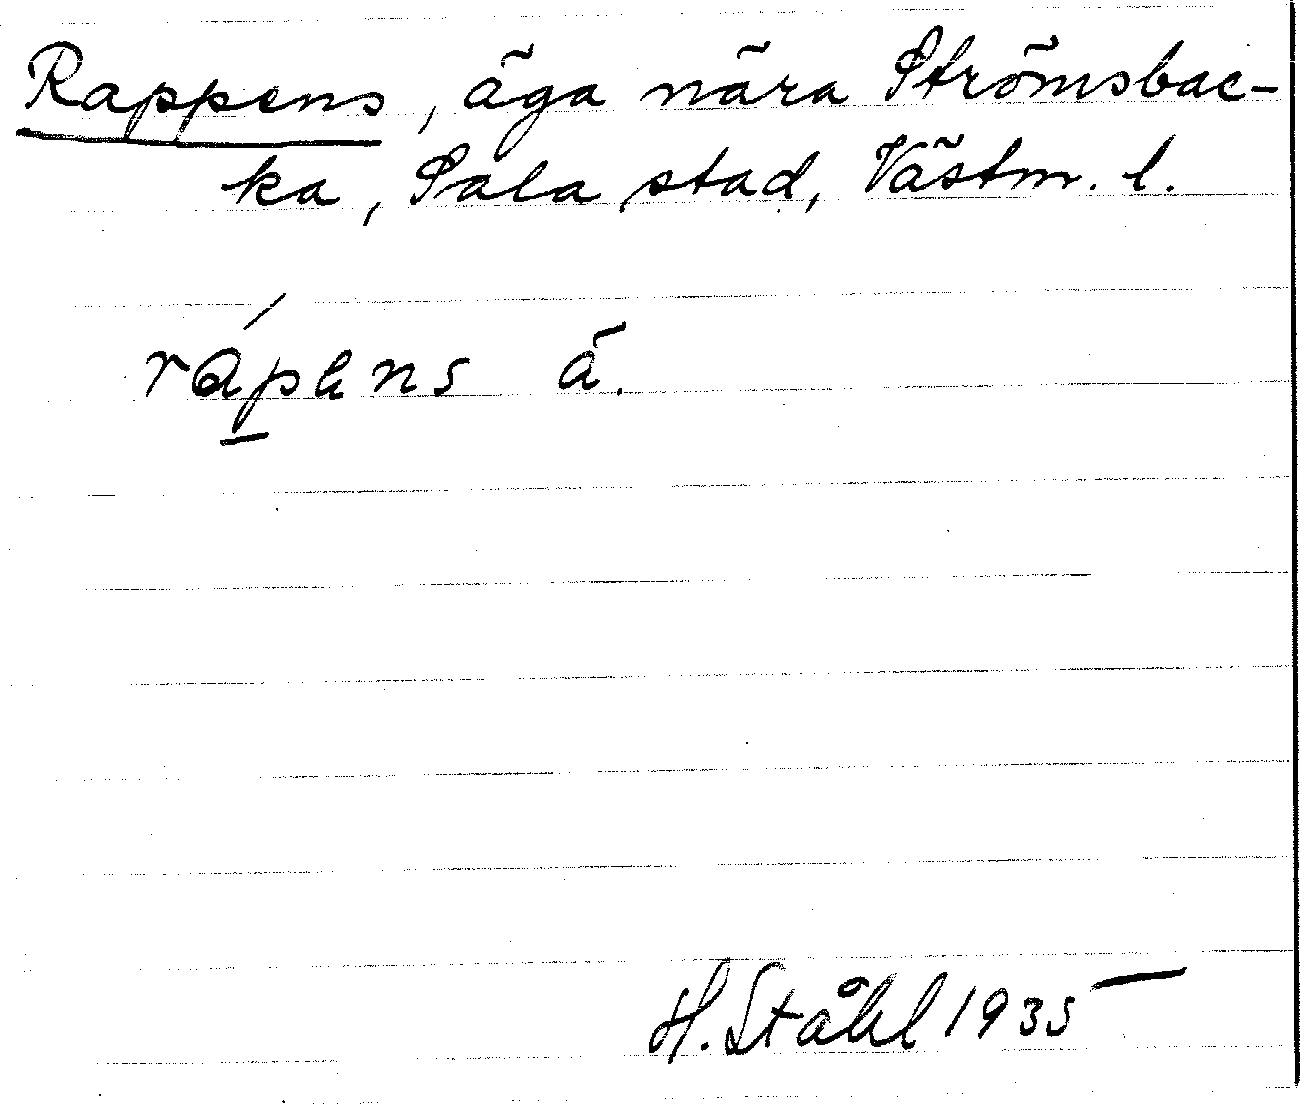 Rappens, äga nära Strömsbac-
ka, Sala stad, Västm. l.
rápens ä.
H. Ståhl 1935